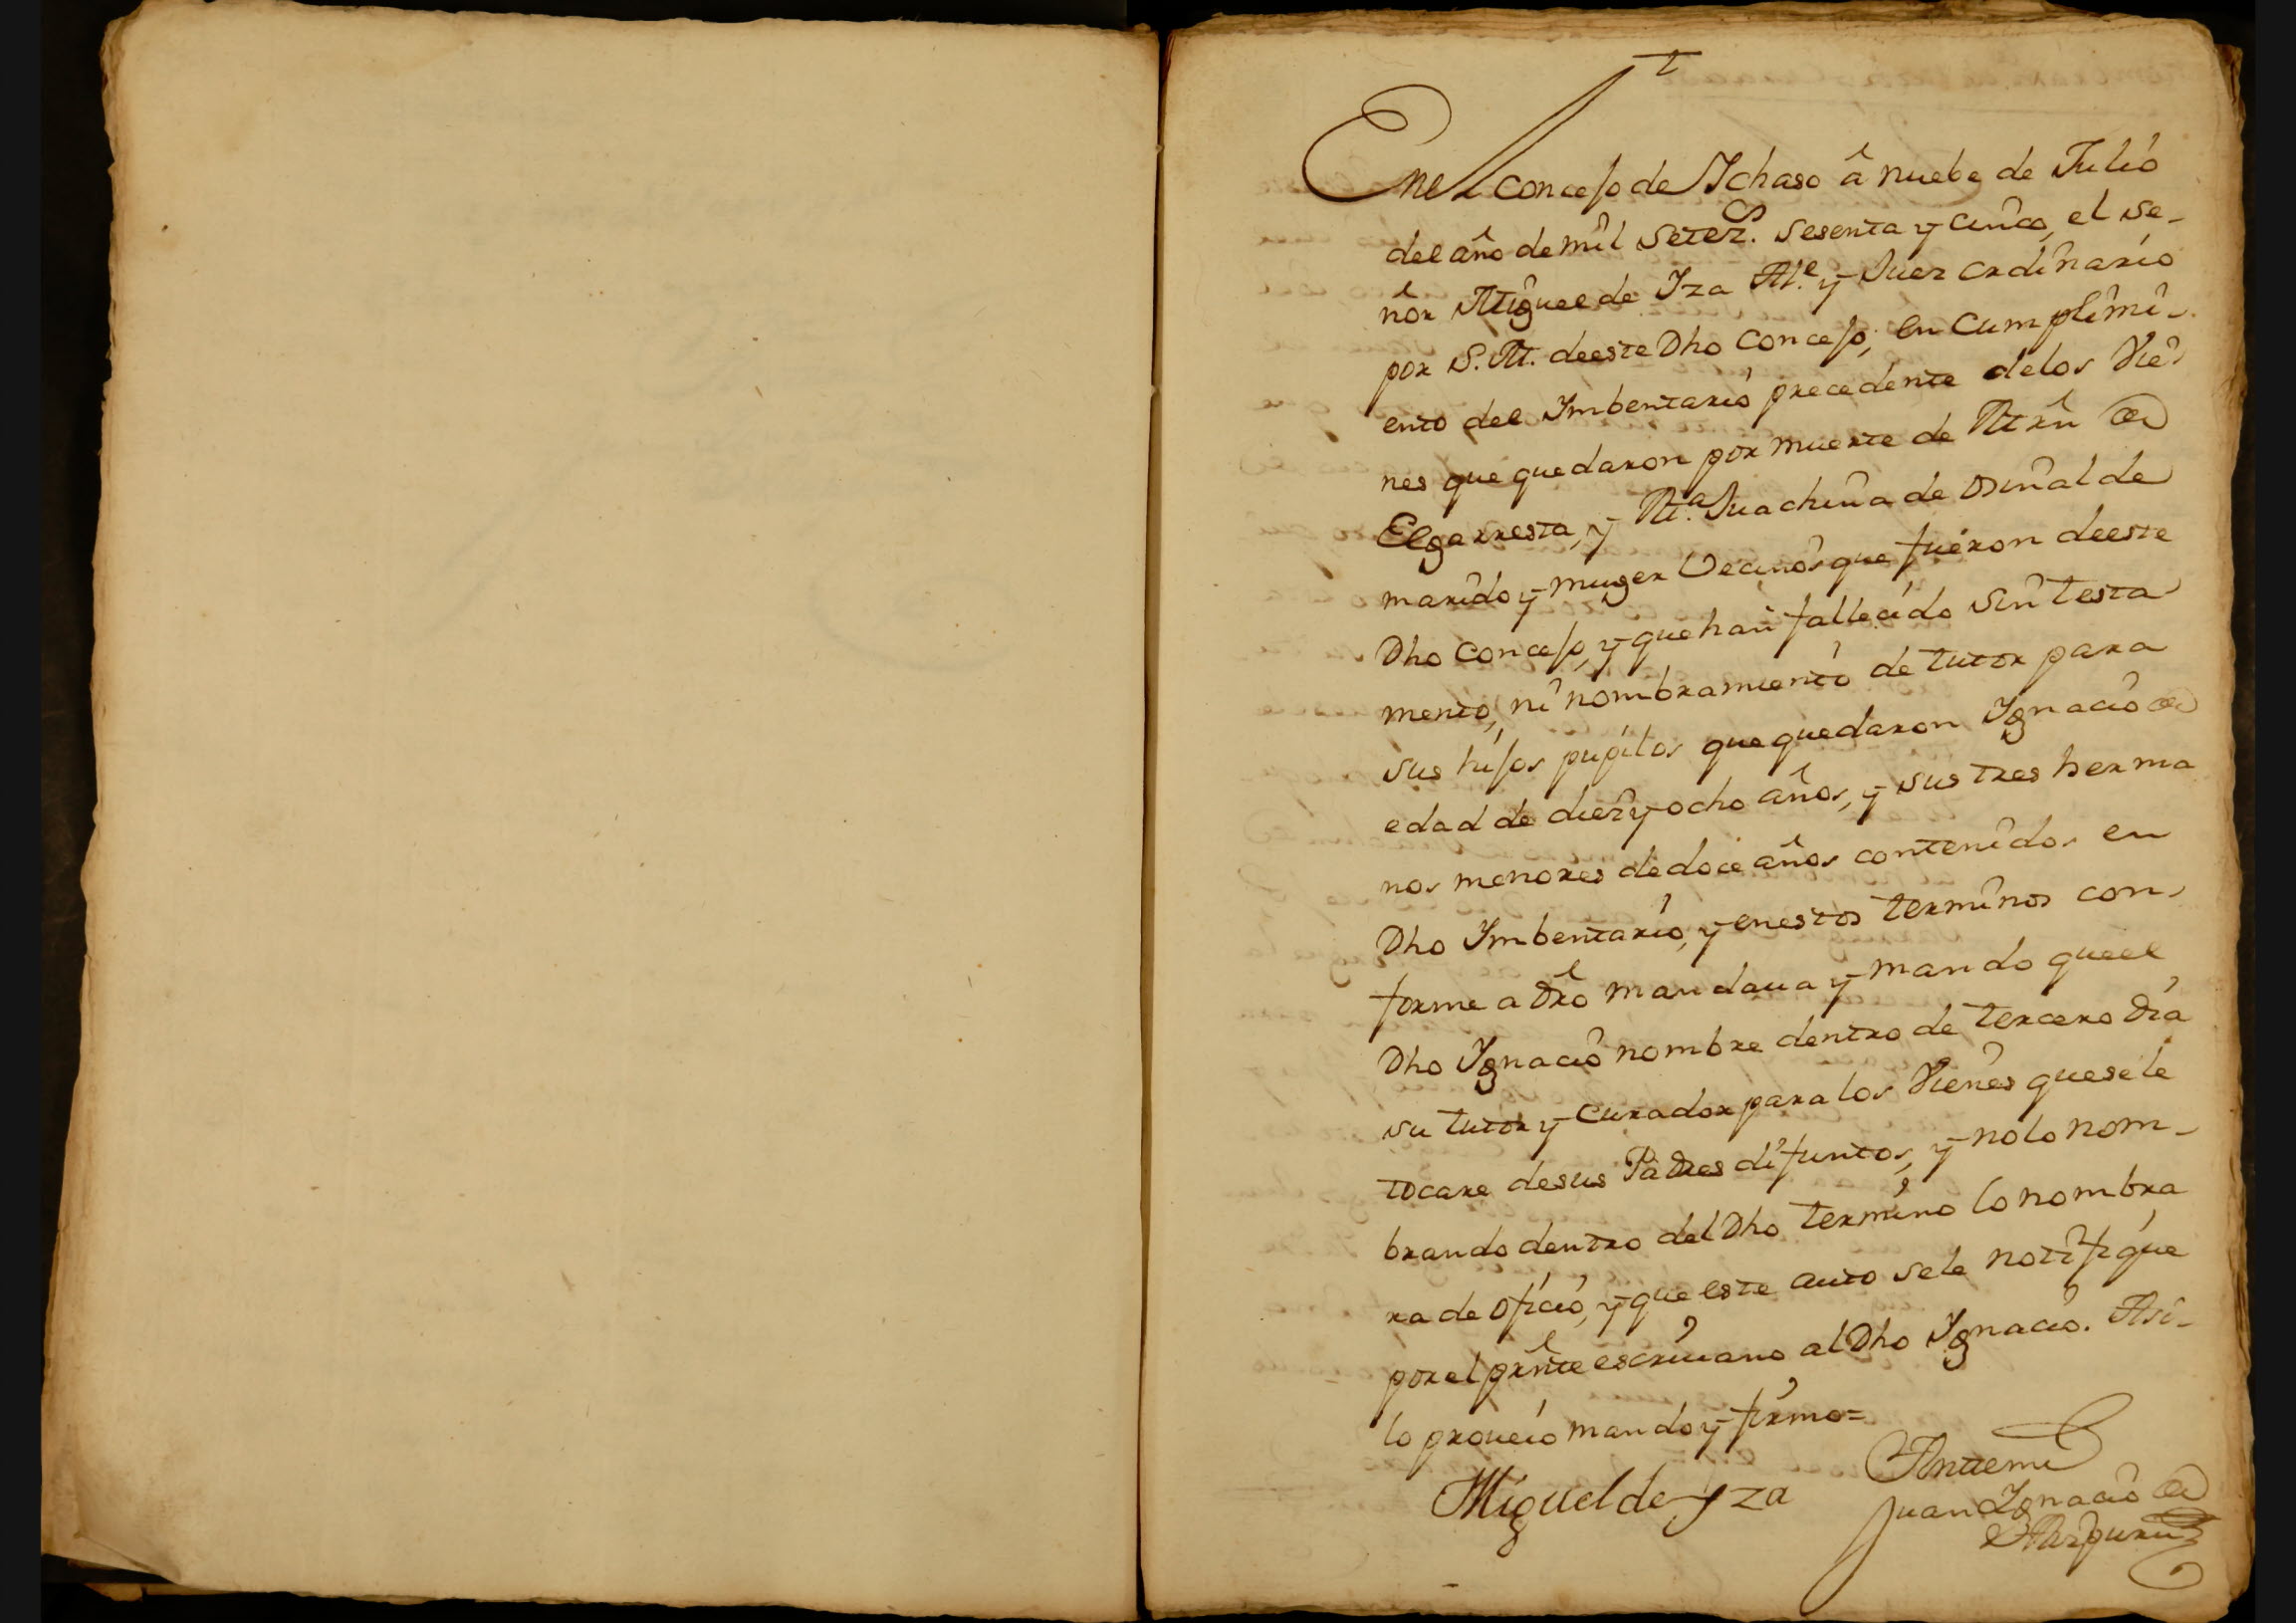 †
En el concejo de Ychaso â nuebe de Julio
del año de mil setez.s sesenta y cinco, el se-
ñor Miguel de Yza Al.e y Juez ordinario
por S. M. de este Dho concejo, en cumplimi-
ento del Imbentario precedente de los Vie-
nes que quedaron por muerte de Mrñ de
Elgarresta, y M.a Juachina de Osinalde
marido y muger Vecinos que fueron de este
Dho concejo, y que han fallecido sin testa
mento, ni nombramiento de tutor para
sus hijos pupilos que quedaron Ygnacio de
edad de diez y ocho años, y sus tres herma
nos menores de doce años contenidos en
Dho Imbentario, y en estos terminos con-
forme a Dro mandaua y mando que el
Dho Ygnacio nombre dentro de tercero Dia
su tutor y curador para los Vienes que se le
tocare de sus Padres difuntos, y no lo nom-
brando dentro del Dho termino lo nombra
ra de oficio, y que este auto se le notifique
por el prnte escriuano al Dho Ygnacio. Asi-
lo proueio mando y firmo=
Miguel de Yza
Antemi
Juan Ygnacio de
Aizpuru